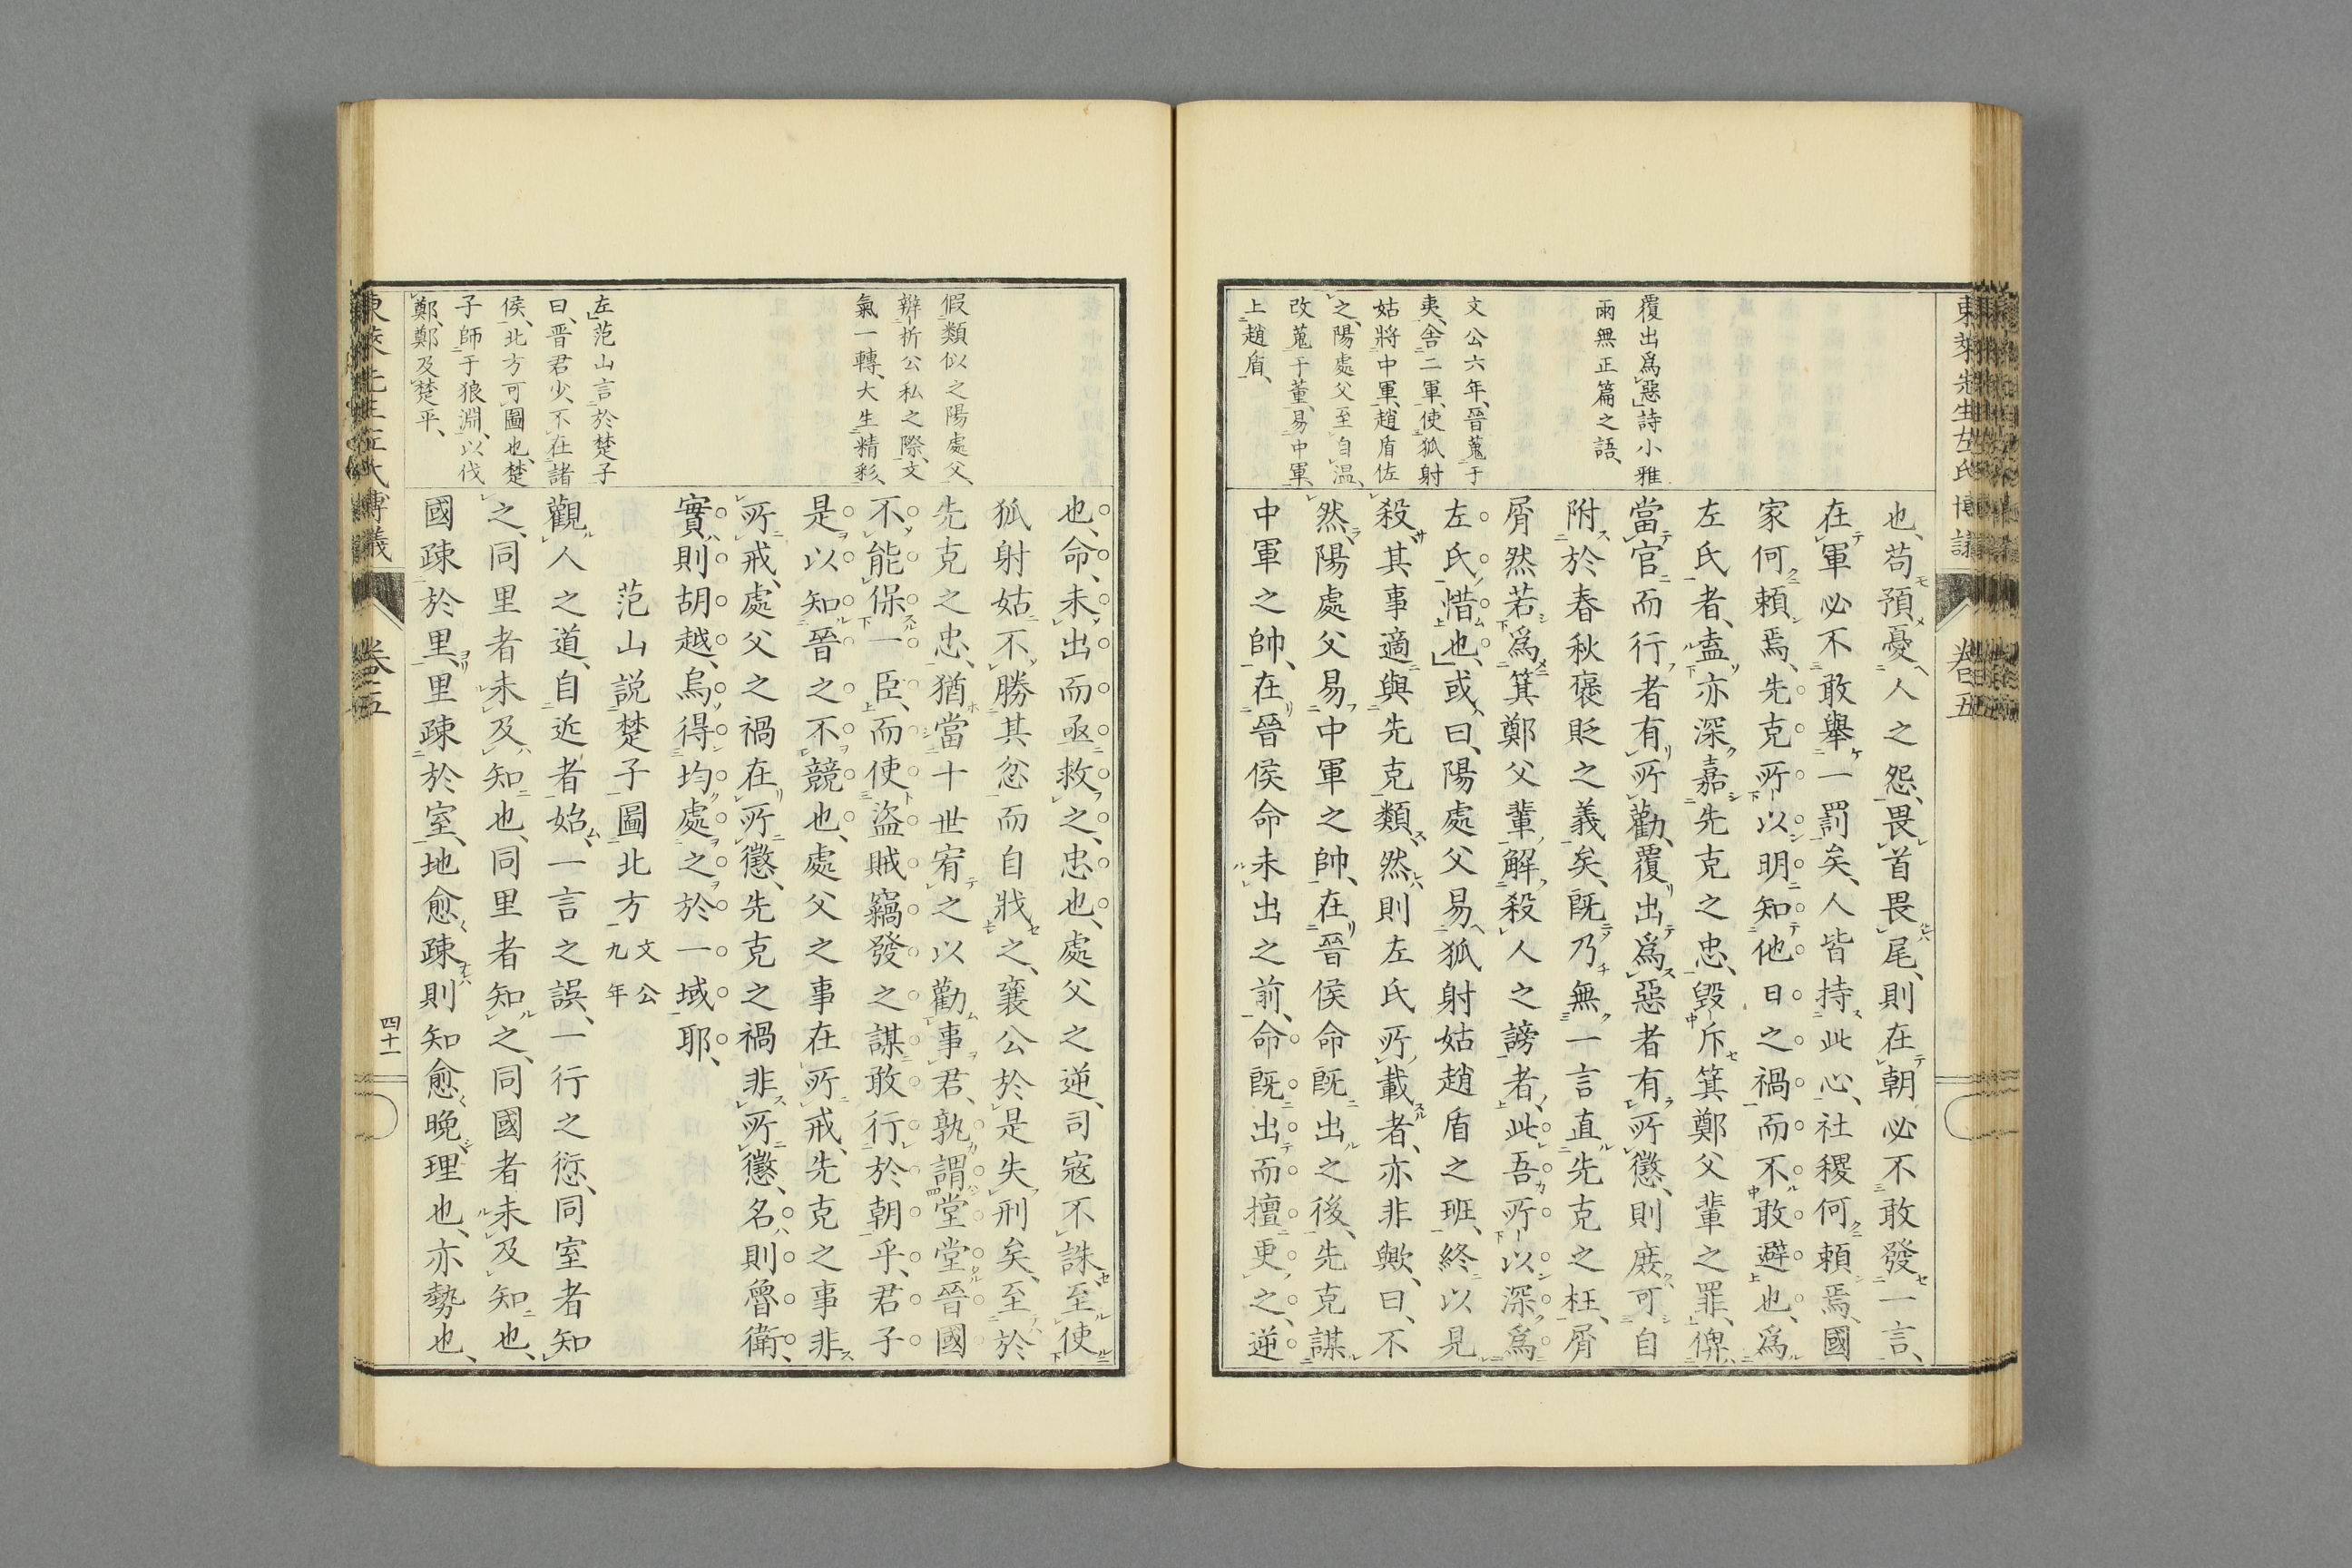 東萊先生左氏博議
卷五
覆出爲惡詩小雅
雨無正篇之語、
文公六年、晉蒐于
夷、舍二軍、使狐射
姑將中軍、趙盾佐
之、陽處父至自温、
改蒐于董、易中軍、
上趙盾、
也、苟預憂人之怨、畏首畏尾、則在朝必不敢發一言、
在軍必不敢舉一罰矣、人皆持此心、社稷何賴焉、國
家何賴焉、先克所以明知他日之禍而不敢避也、爲
左氏者、盍亦深嘉先克之忠、毀斥箕鄭父輩之罪、俾
當官而行者有所勸、覆出爲惡者有所懲、則庶可自
附於春秋褒貶之義矣、既乃無一言直先克之枉、屑
屑然若爲箕鄭父輩解殺人之謗者、此吾所以深爲
左氏惜也、或曰、陽處父易狐射姑趙盾之班、終以見
殺、其事適與先克類、然則左氏所載者、亦非歟、曰、不
然、陽處父易中軍之帥、在晉侯命既出之後、先克謀
中軍之帥、在晉侯命未出之前、命既出而擅更之、逆
假類似之陽處父、
辨析公私之際、文
氣一轉、大生精彩、
左范山言於楚子
曰、晉君少、不在諸
侯、北方可圖也、楚
子師于狼淵、以伐
鄭、鄭及楚平、
也、命未出而亟救之、忠也、處父之逆、司寇不誅至使
狐射姑不勝其忿而自戕之、襄公於是失刑矣、至於
先克之忠、猶當十世宥之以勸事君、孰謂堂堂晉國
不能保一臣、而使盜賊竊發之謀敢行於朝乎、君子
是以知晉之不競也、處父之事在所戒、先克之事非
所戒、處父之禍在所懲、先克之禍非所懲、名則魯衛、
實則胡越、烏得均處之於一域耶、
范山説楚子圖北方文公九年
觀人之道、自近者始、一言之誤、一行之愆、同室者知
之、同里者未及知也、同里者知之、同國者未及知也、
國疎於里、里疎於室、地愈疎則知愈晚理也、亦勢也、
東萊先生左氏博議
卷五
四十一